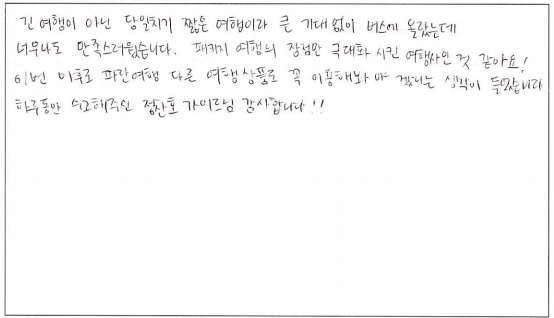 긴 여행이 아닌 당일치기 짧은 여행이라 큰 기대 없이 버스에 올랐는데
너무나도 만족스러웠습니다. 패키지 여행의 장점만 극대화 시킨 여행사인 것 같아요!
이번 이후로 파란여행 다른 여행상품로 꼭 이용해봐야 겠다는 생각이 들었습니다
하루동안 수고해주신 정찬호 가이드님 감사합니다!!